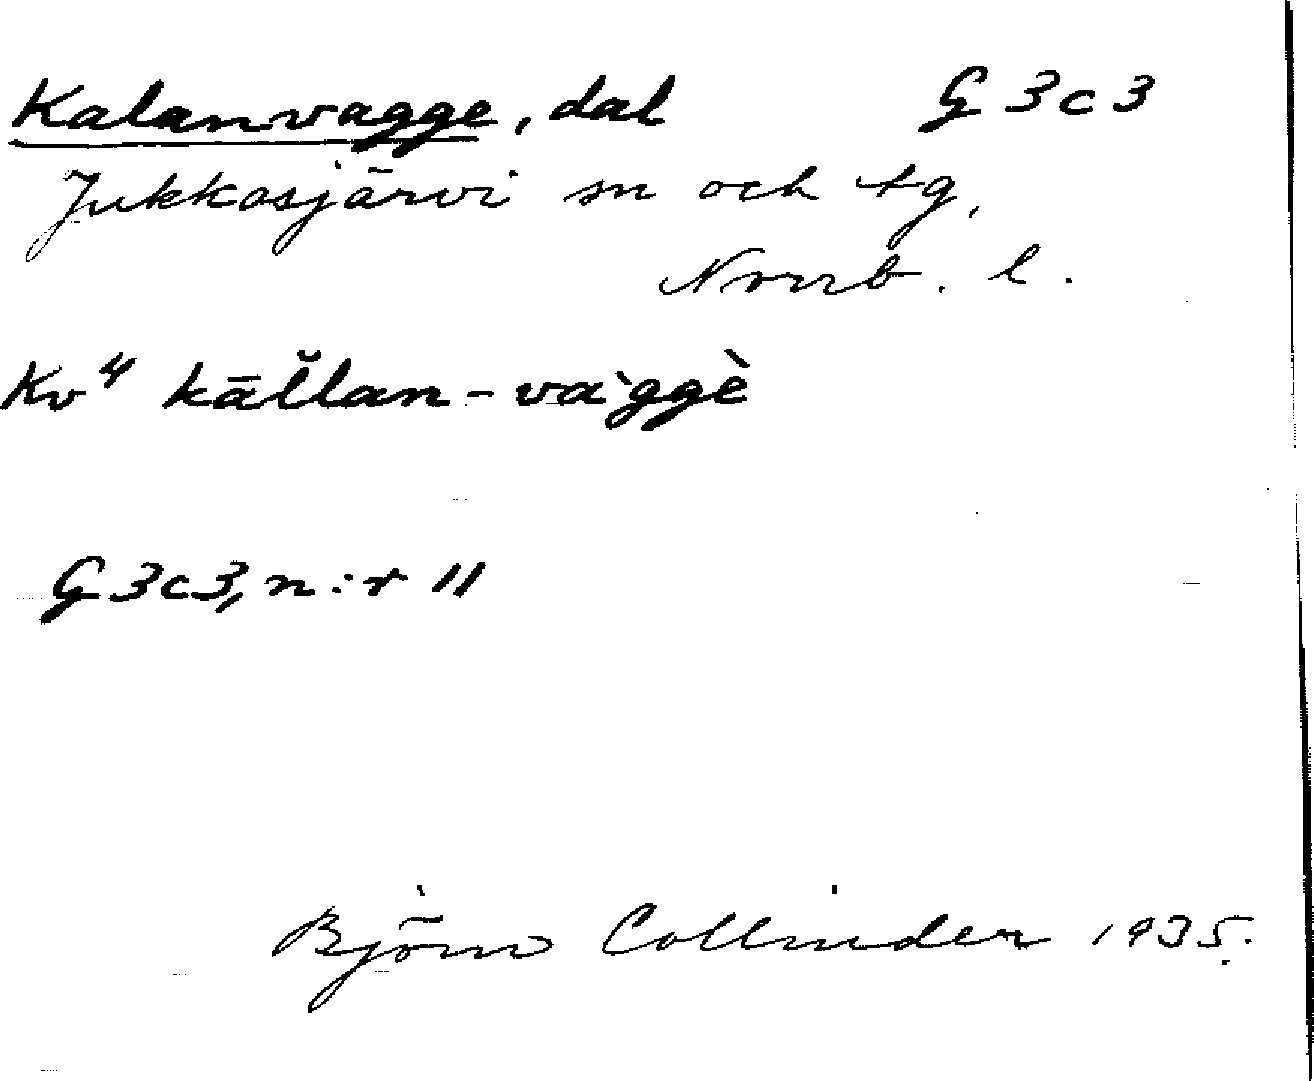 Kalanvagge, dal G 3 c 3
Jukkasjärvi sn och tg,
Norrb. l.
Kv⁴ kāl̆lan-va`ggè
G 3 c 3, n:r 11
Björn Collinder 1935.